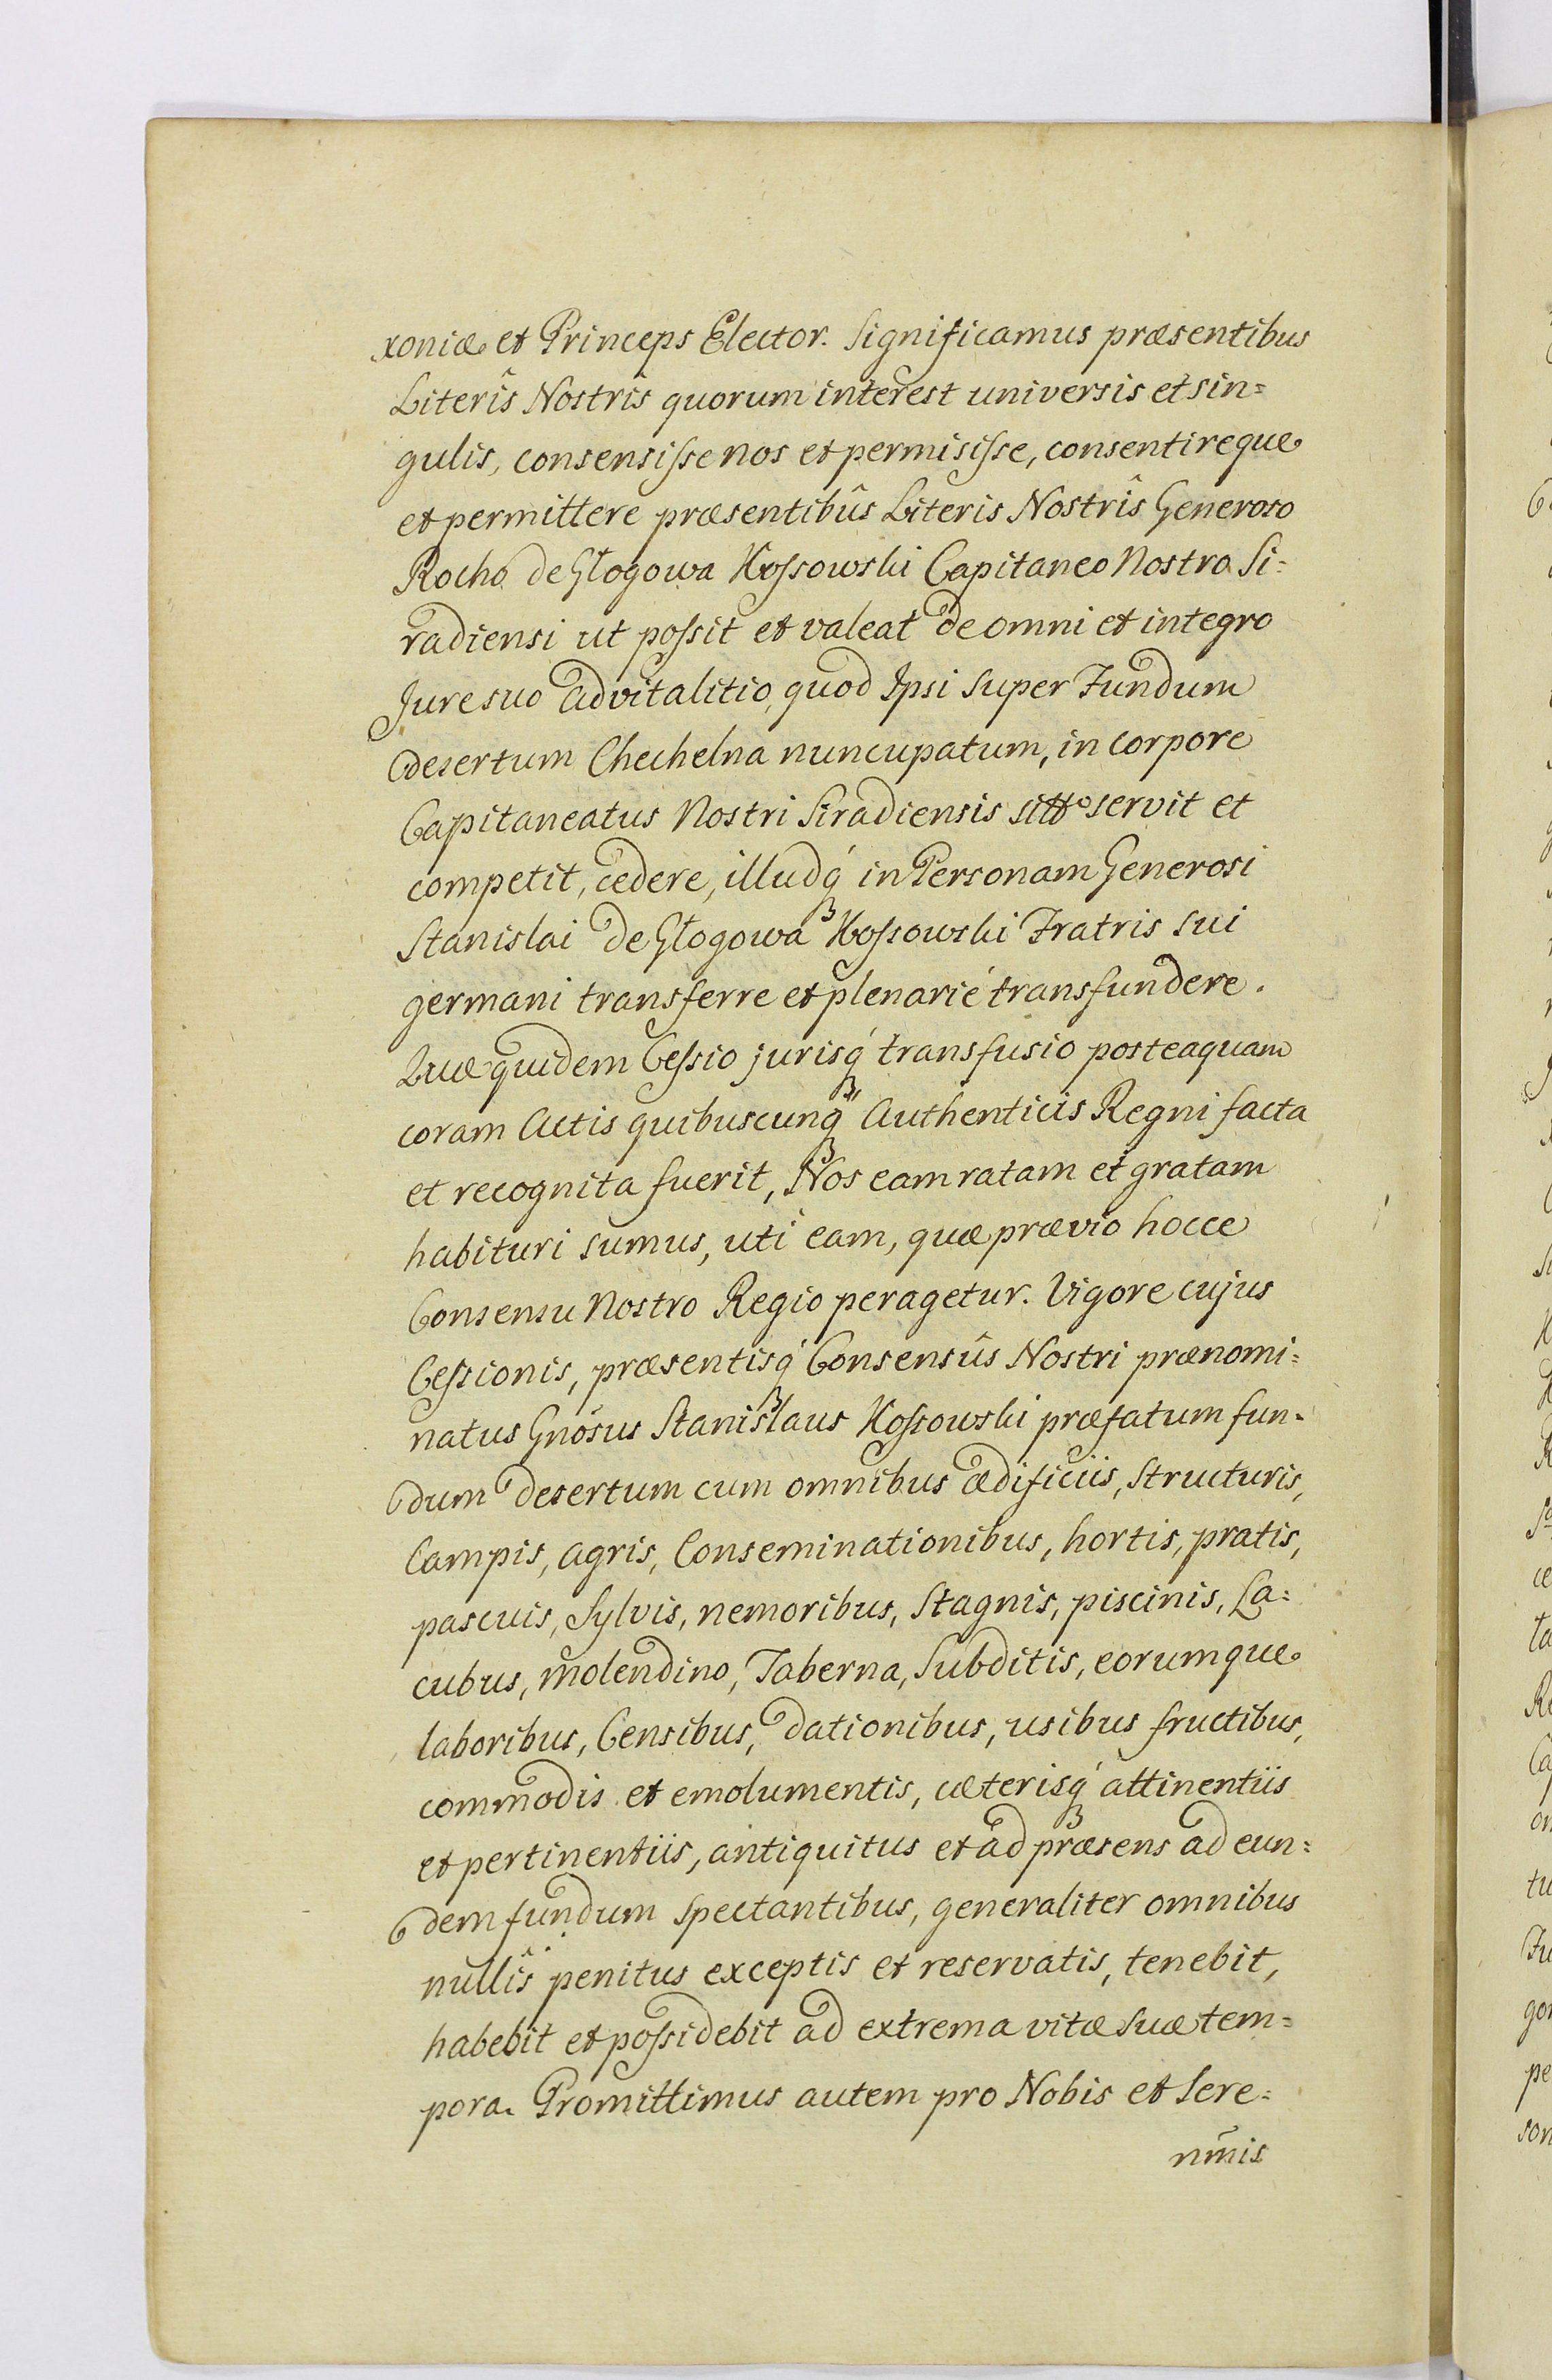 xoniæ et Princeps Elector. Significamus præsentibus
Literîs Nostrîs quorum interest universis et sin=
gulis, consensisse nos et permisisse, consentireque
et permittere præsentibûs Literis Nostrîs Generoso
Rocho de Głogowa Kossowski Capitaneo Nostro Si=
radiensi ut possit et valeat de omni et integro
Jure suo advitalitio, quod Ipsi super Fundum
desertum Chechelna nuncupatum, in corpore
Capitaneatus Nostri Siradiensis servit et
competit, cedere, illudq́ in Personam Generosi
Stanislai de Głogowa Kossowski Fratris sui
germani transferre et plenarié transfundere.
Quæ quidem Cessio jurisq́ transfusio posteaquam
coram Actis quibuscunq́ Authenticis Regni facta
et recognita fuerit, Nos eam ratam et gratam
habituri sumus, uti eam, quæ prævio hocce
Consensu Nostro Regio peragetur. Vigore cujus
Cessionis, præsentisq́ Consensûs Nostri prænomi=
natus Gnosus Stanislaus Kossowski præfatum fun=
dum desertum cum omnibus ædificiis, structuris,
Campis, agris, Conseminationibus, hortis, pratis,
pascuis, Sylvis, nemoribus, Stagnis, piscinis, La=
cubus, molendino, Taberna, Subditis, eorumque
laboribus, Censibus, dationibus, usibus fructibus,
commodis et emolumentis, cæterisq́ attinentiis
et pertinentiis, antiquitus et ad præsens ad eun=
dem fundum spectantibus, generaliter omnibus
nullîs penitus exceptis et reservatis, tenebit,
habebit et possidebit ad extrema vitæ suæ tem=
pora. Promittimus autem pro Nobis et Sere=
nm̃is